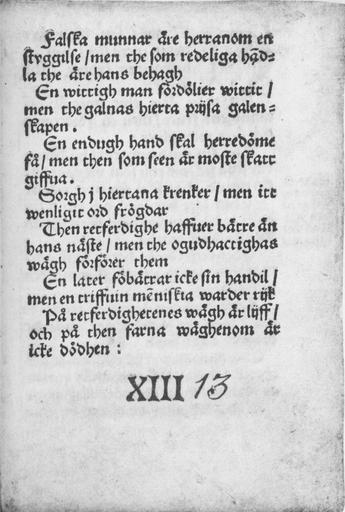 Falska munnar äre herranom en
styggilse / men the som redeliga hãd⸗
la the äre hans behagh
En wittigh man fördölier wittit /
men the galnas hierta prijsa galen⸗
skapen.
En endugh hand skal herredöme
få / men then som seen är moste skatt
giffua.
Sorgh j hiertana krenker / men itt
wenligit ord frögdar
Then retferdighe haffuer bätre än
hans näste / men the ogudhactighas
wägh förförer them
En later föbätrar icke sin handil /
men en triffuin mẽniskia warder rijk
På retferdighetenes wägh är lijff /
och på then farna wäghenom är
icke dödhen :
XIII 13